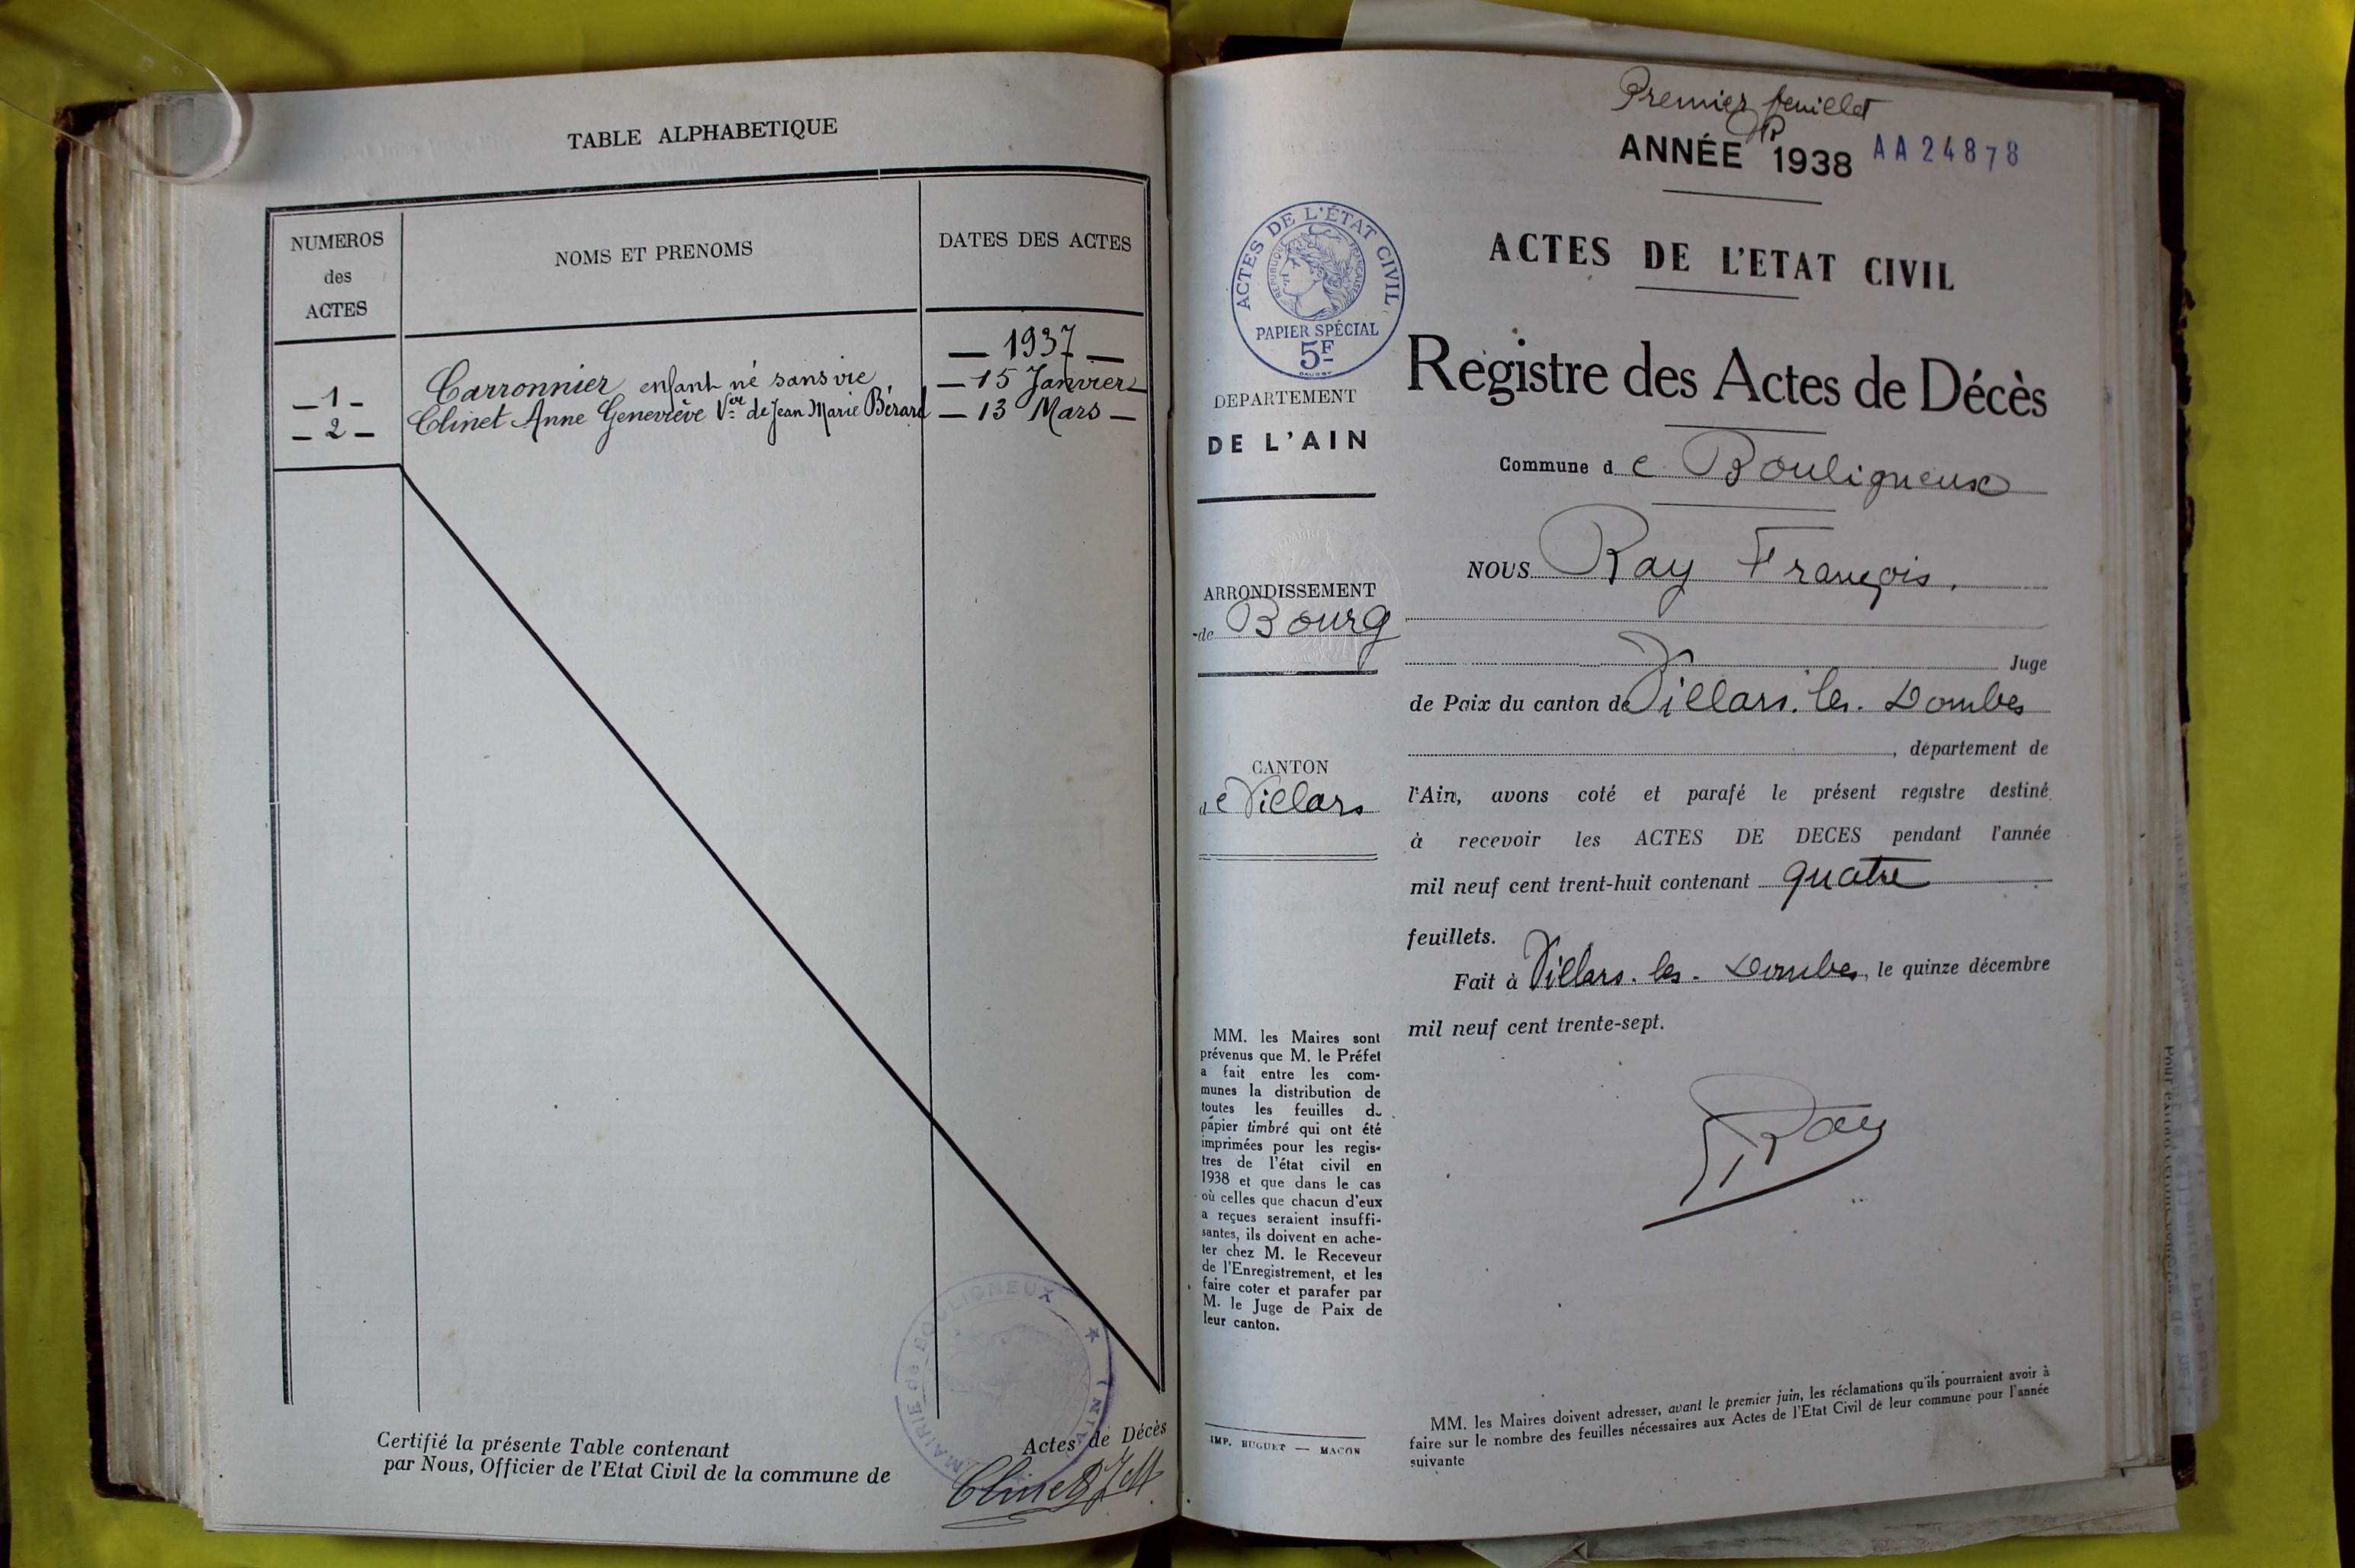 TABLE ALPHABETIQUE
NUMEROS
des
ACTES
NOMS ET PRENOMS
DATES DES ACTES
— 1937 —
— 1 — Carronnier enfant né sans vie — 15 Janvier —
— 2 — Clinet Anne Geneviève Vve de Jean Marie Bérard — 13 Mars —
MAIRIE de BOULIGNEUX ★ (AIN)
Certifié la présente Table contenant Actes de Décès
par Nous, Officier de l'Etat Civil de la commune de
Clinet
Premier feuillet
ANNÉE 1938 AA24878
ACTES DE L'ÉTAT CIVIL
RÉPUBLIQUE FRANÇAISE
PAPIER SPÉCIAL
5F
DEPARTEMENT
DE L'AIN
ARRONDISSEMENT
de Bourg
CANTON
de Villars
MM. les Maires sont
prévenus que M. le Préfet
a fait entre les com-
munes la distribution de
toutes les feuilles du
papier timbré qui ont été
imprimées pour les regis-
tres de l'état civil en
1938 et que dans le cas
où celles que chacun d'eux
a reçues seraient insuffi-
santes, ils doivent en ache-
ter chez M. le Receveur
de l'Enregistrement, et les
faire coter et parafer par
M. le Juge de Paix de
leur canton.
IMP. BUGUET — MACON
ACTES DE L'ETAT CIVIL
Registre des Actes de Décès
Commune de Bouligneux
NOUS Ray François.
Juge
de Paix du canton de Villars. les. Dombes
, département de
l'Ain, avons coté et parafé le présent registre destiné
à recevoir les ACTES DE DECES pendant l'année
mil neuf cent trent-huit contenant quatre
feuillets.
Fait à Villars. les. Dombes, le quinze décembre
mil neuf cent trente-sept.
Ray
MM. les Maires doivent adresser, avant le premier juin, les réclamations qu'ils pourraient avoir à
faire sur le nombre des feuilles nécessaires aux Actes de l'Etat Civil de leur commune pour l'année
suivante